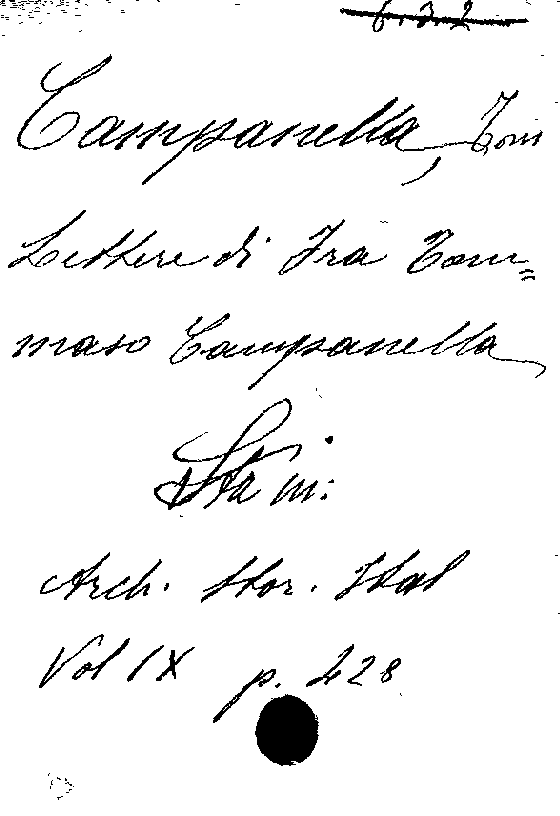 6.3.2
Campanella, Tom
Lettere di Frà Tom=
maso Campanella
Sta in:
Arch. Stor. Ital
Vol IX p. 428